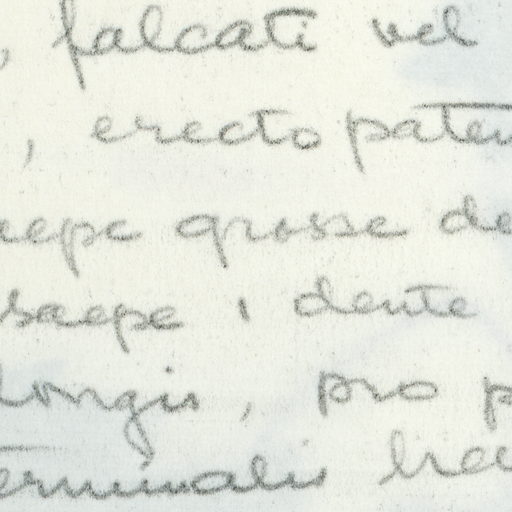 , falcati vel
, erecto paten
aepe grosse de
saepe , dente
longis , pro p
terminalis brev